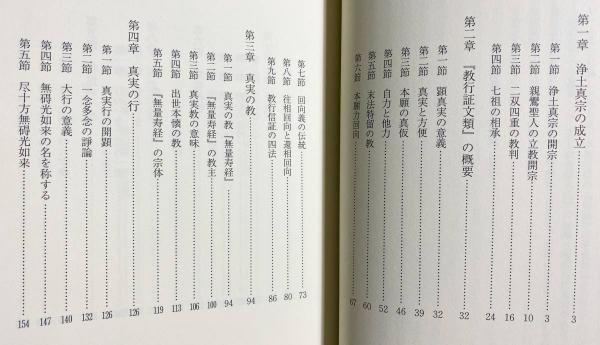 第一章　浄土真宗の成立…………3
第一節　浄土真宗の開宗…………3
第二節　親鸞聖人の立教開宗…………10
第三節　二双四重の教判…………16
第四節　七祖の相承…………24
第二章　『教行証文類』の概要…………32
第一節　顕真実の意義…………32
第二節　真実と方便…………39
第三節　本願の真仮…………46
第四節　自力と他力…………52
第五節　末法特留の教…………60
第六節　本願力回向…………67
第七節　回向義の伝統…………73
第八節　往相回向と還相回向…………80
第九節　教行信証の四法…………86
第三章　真実の教…………94
第一節　真実の教『無量寿経』…………94
第二節　『無量寿経』の教主…………100
第三節　真実教の意味…………106
第四節　出世本懐の教…………113
第五節　『無量寿経』の宗体…………119
第四章　真実の行…………126
第一節　真実行の開顕…………126
第二節　一念多念の諍論…………132
第三節　大行の意義…………140
第四節　無碍光如来の名を称する…………147
第五節　尽十方無碍光如来…………154